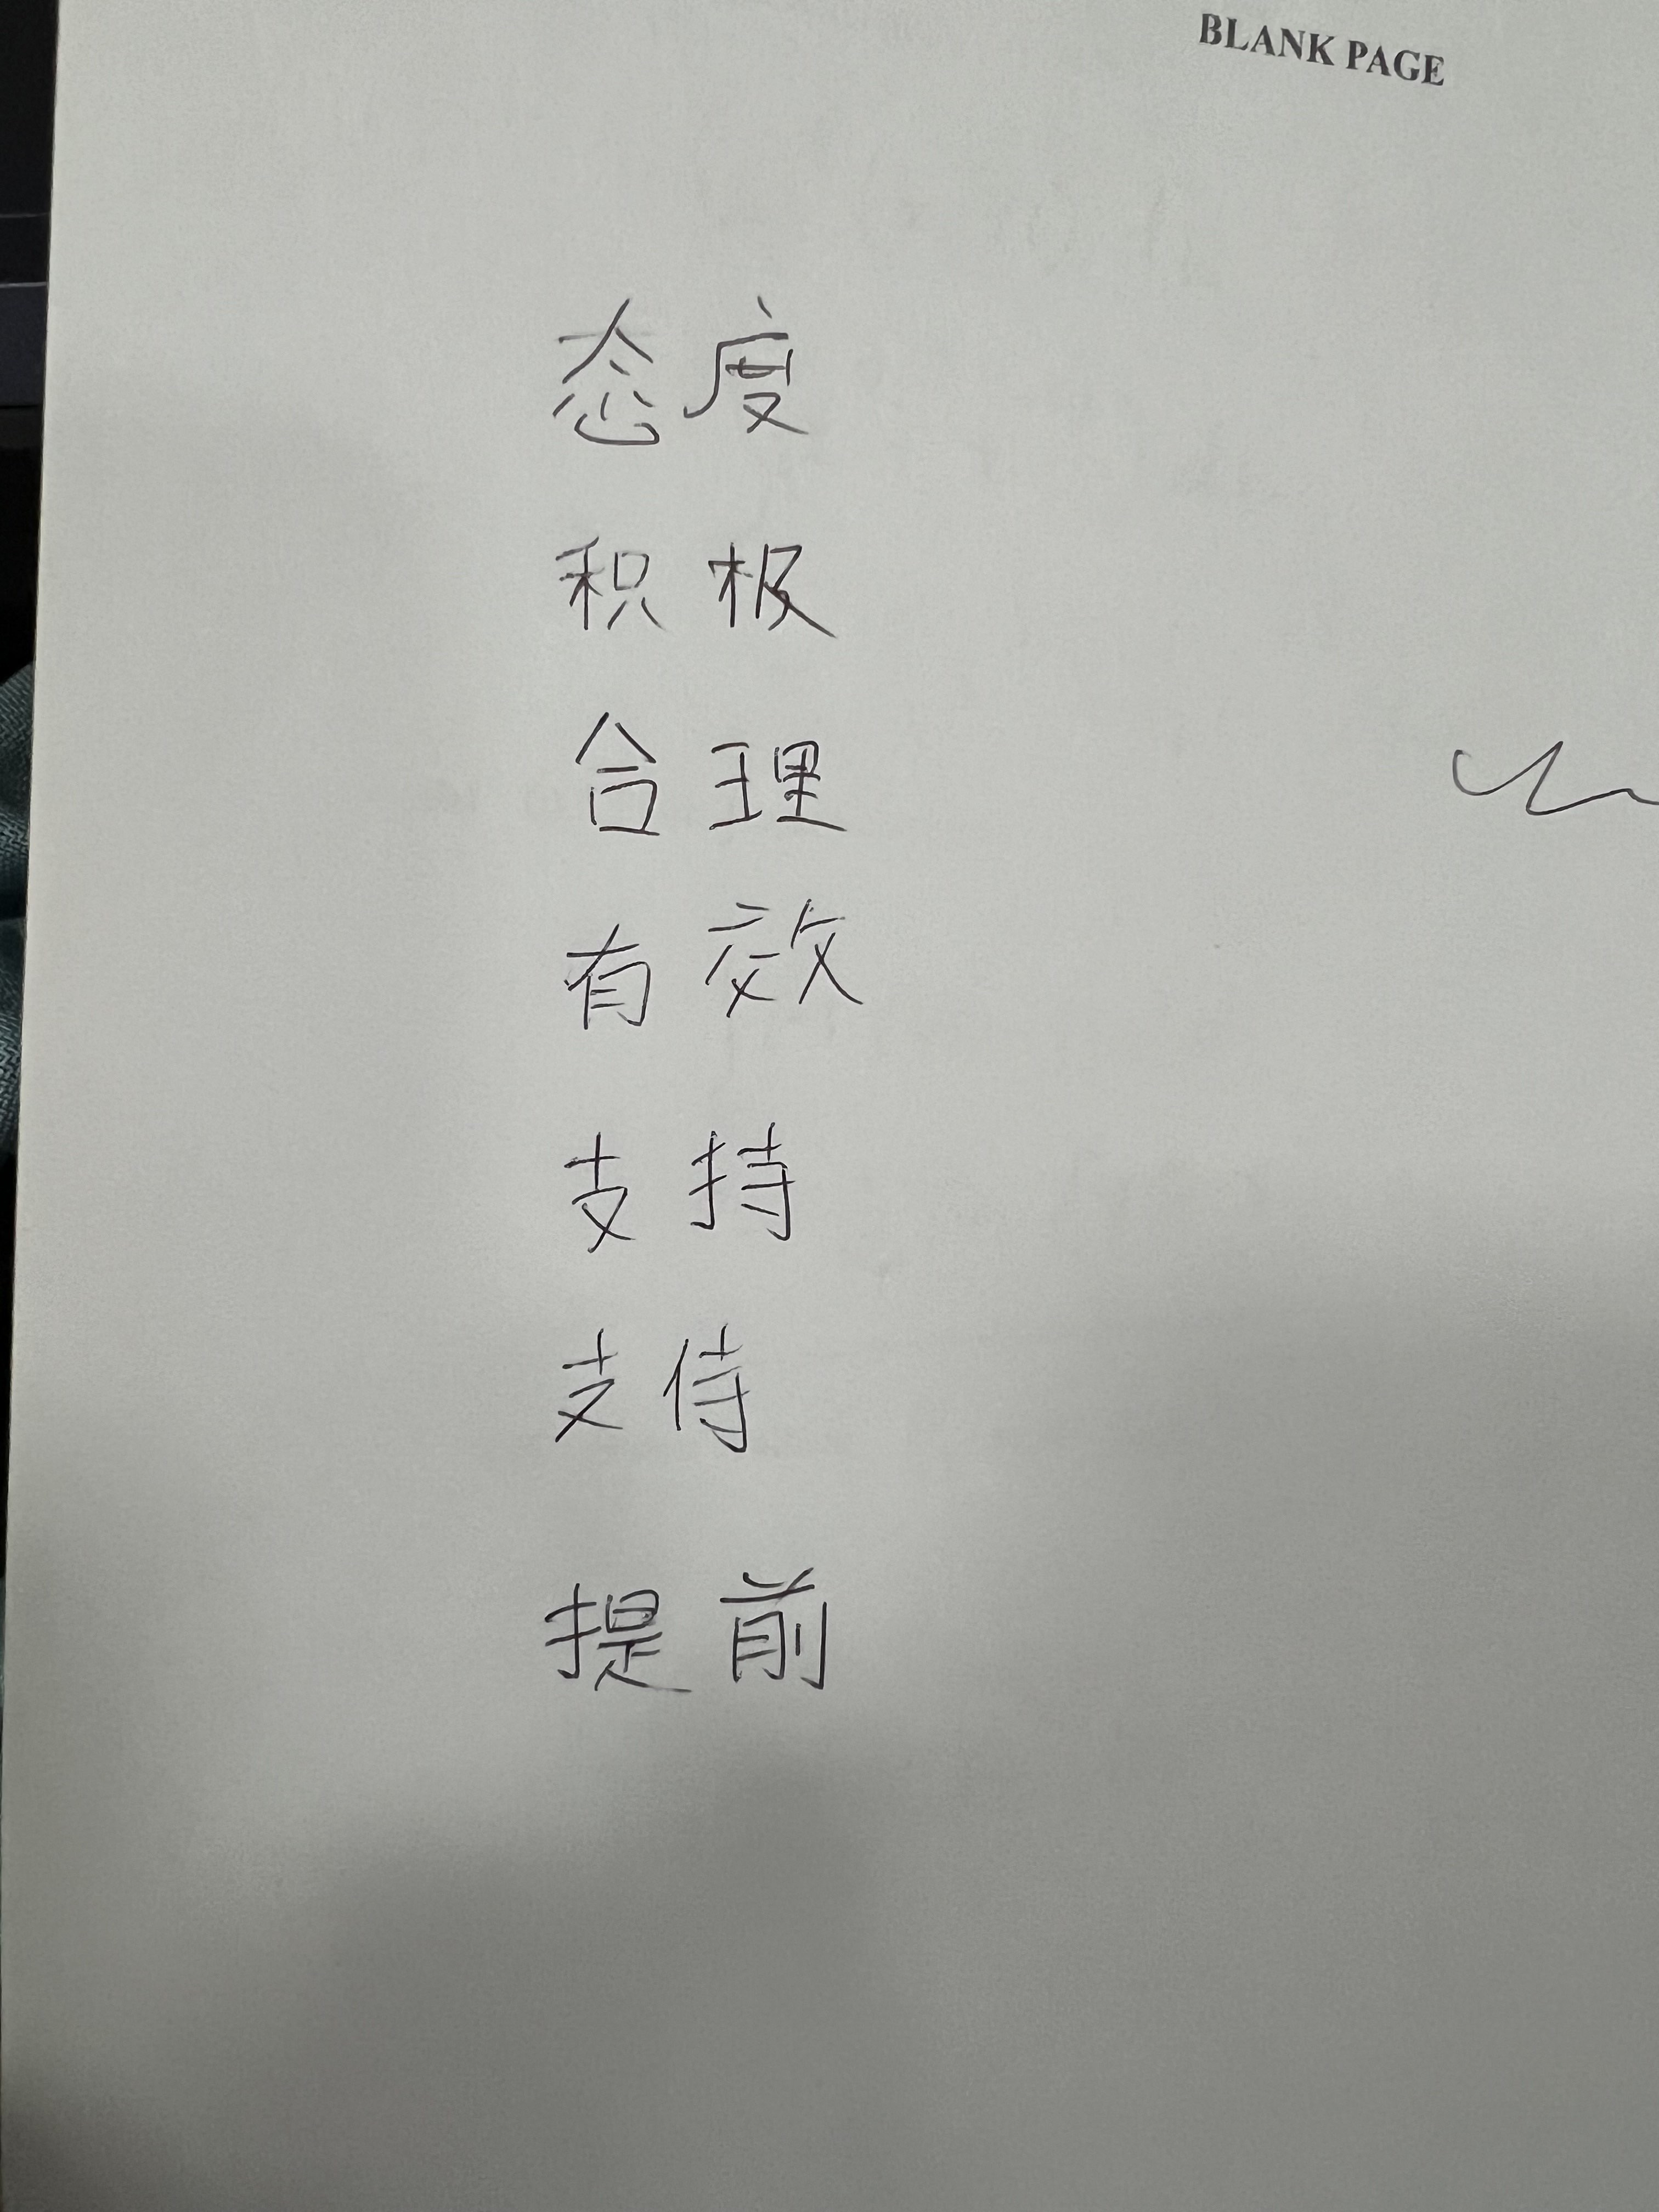 BLANK PAGE
态度
积极
合理
有效
支持
支侍
提前